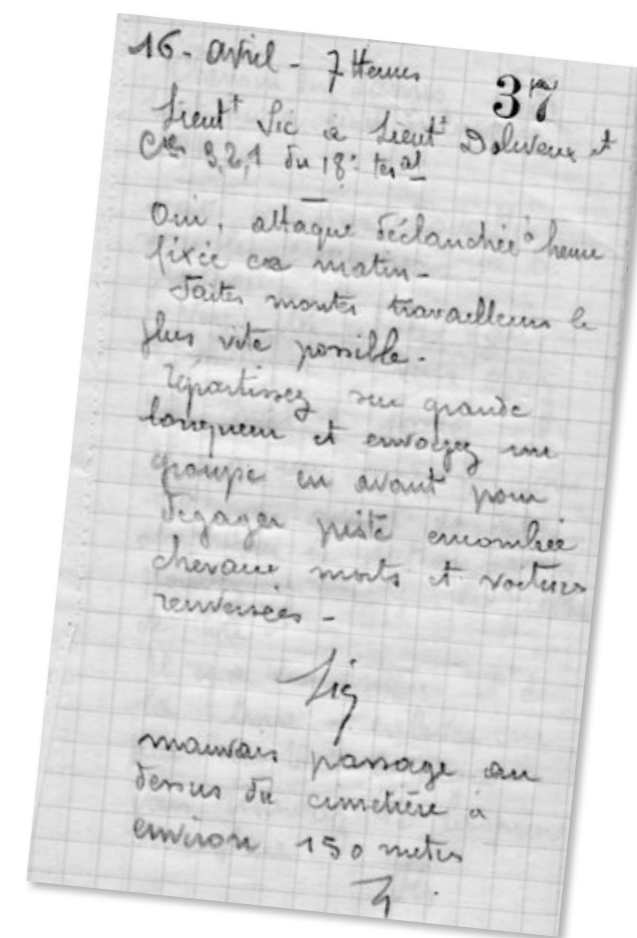 16 - avril - 7 Heures
37
Lieut^t Sic à Lieut^t Doliveux et
C^ies 3, 2, 1 du 18^e ter^al
Oui, attaque déclanchée à heure
fixée ce matin -
Faites monter travailleurs le
plus vite possible -
Répartissez sur grande
longueur et envoyez une
groupe en avant pour
dégager piste encombrée
chevaux morts et voitures
renversées -
Sic
mauvais passage au
dessus du cimetière à
environ 150 metres